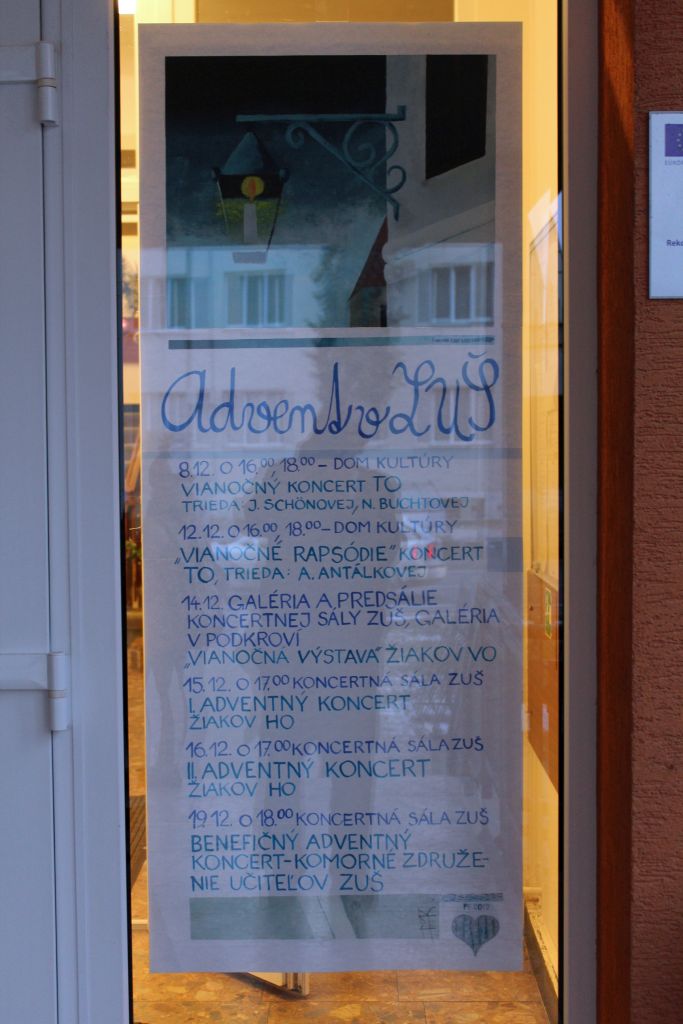 Advent v ZUŠ
8.12. O 16,00 18.00 – DOM KULTÚRY
VIANOČNÝ KONCERT TO
TRIEDA: J. SCHÖNOVEJ, N. BUCHTOVEJ
12.12. O 16.00, 18.00 – DOM KULTÚRY
„VIANOČNÉ RAPSÓDIE" KONCERT
TO, TRIEDA: A. ANTÁLKOVEJ
14.12. GALÉRIA A PREDSÁLIE
KONCERTNEJ SÁLY ZUŠ, GALÉRIA
V PODKROVÍ
„VIANOČNÁ VÝSTAVA" ŽIAKOV VO
15.12. O 17.00 KONCERTNÁ SÁLA ZUŠ
I. ADVENTNÝ KONCERT
ŽIAKOV HO
16.12. O 17.00 KONCERTNÁ SÁLA ZUŠ
II. ADVENTNÝ KONCERT
ŽIAKOV HO
19.12. O 18.00 KONCERTNÁ SÁLA ZUŠ
BENEFIČNÝ ADVENTNÝ
KONCERT-KOMORNÉ ZDRUŽE-
NIE UČITEĽOV ZUŠ
Reko